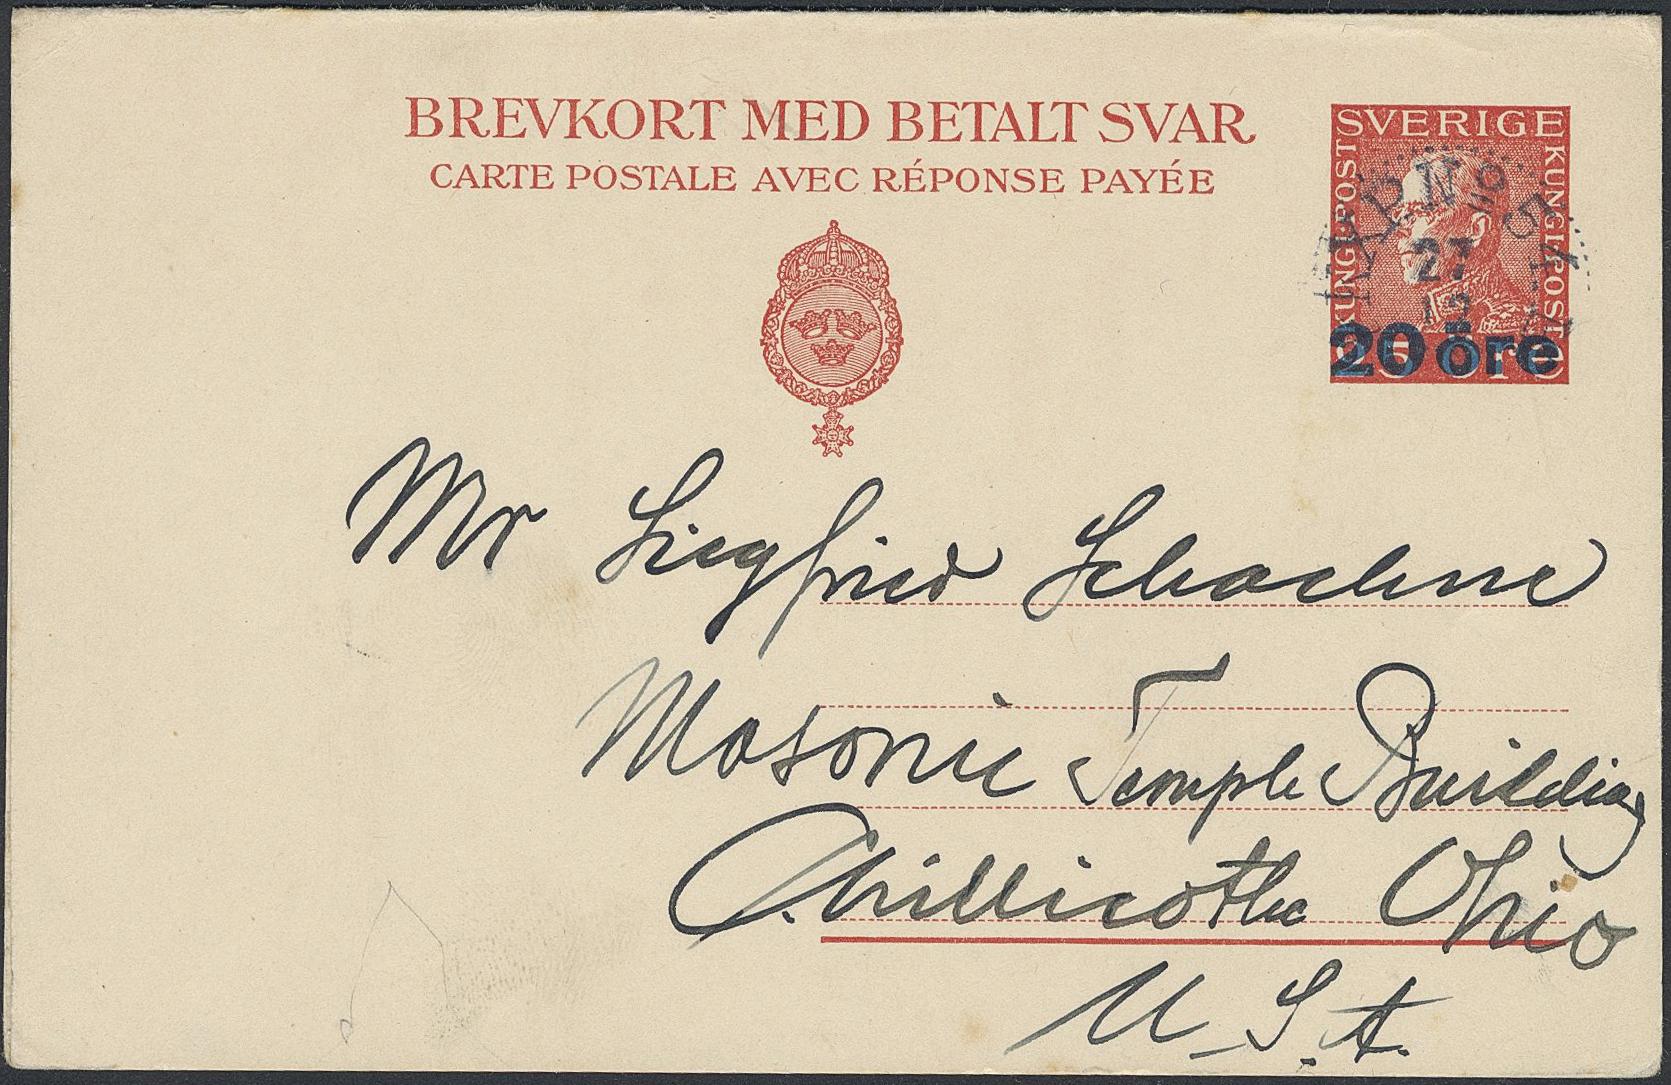 BREVKORT MED BETALT SVAR
CARTE POSTALE AVEC RÉPONSE PAYÉE
SVERIGE
KUNGL POST
KUNGL POST
25 ÖRE
20 öre
27
12
Mr Siegfried Schachne
Masonic Temple Building
Chillicothe Ohio
U.S.A.